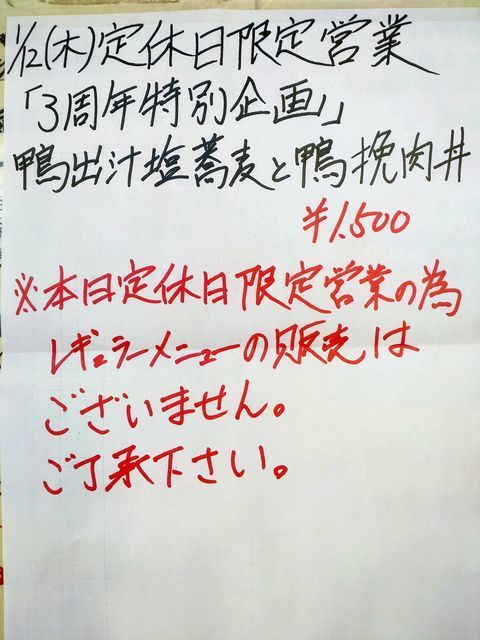 1/12(木)定休日限定営業
「3周年特別企画」
鴨出汁塩蕎麦と鴨挽肉丼
¥1,500
※本日定休日限定営業の為
レギュラーメニューの販売は
ございません。
ご了承下さい。